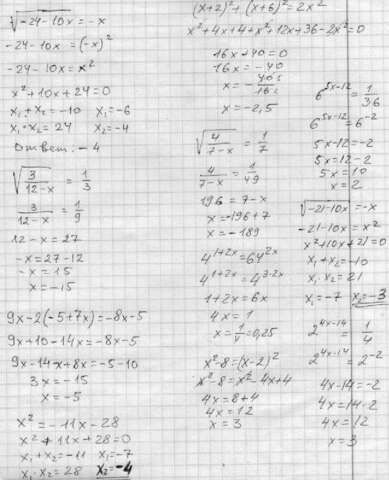 √-24-10x = -x
-24-10x = (-x)²
-24-10x = x²
x²+10x+24=0
x₁+x₂=-10 x₁=-6
x₁·x₂=24 x₂=-4
Ответ: -4
√3/12-x = 1/3
3/12-x = 1/9
12-x=27
-x=27-12
-x=15
x=-15
9x-2(-5+7x)=-8x-5
9x+10-14x=-8x-5
9x-14x+8x=-5-10
3x=-15
x=-5
x²=-11x-28
x²+11x+28=0
x₁+x₂=-11 x₁=-7
x₁·x₂=28 x₂=-4
(x+2)²+(x+6)²=2x²
x²+4x+4+x²+12x+36-2x²=0
16x+40=0
16x=-40
x=-40/16
x=-2,5
√4/7-x = 1/7
4/7-x = 1/49
196=7-x
x=-196+7
x=-189
4^1+2x=64^2x
4^1+2x=4^3·2x
1+2x=6x
4x=1
x=1/4=0,25
x²-8=(x-2)²
x²-8=x²-4x+4
4x=8+4
4x=12
x=3
6^5x-12=1/36
6^5x-12=6^-2
5x-12=-2
5x=12-2
5x=10
x=2
√-21-10x=-x
-21-10x=x²
x²+10x+21=0
x₁+x₂=-10
x₁·x₂=21
x₁=-7 x₂=-3
2^4x-14=1/4
2^4x-14=2^-2
4x-14=-2
4x=14-2
4x=12
x=3